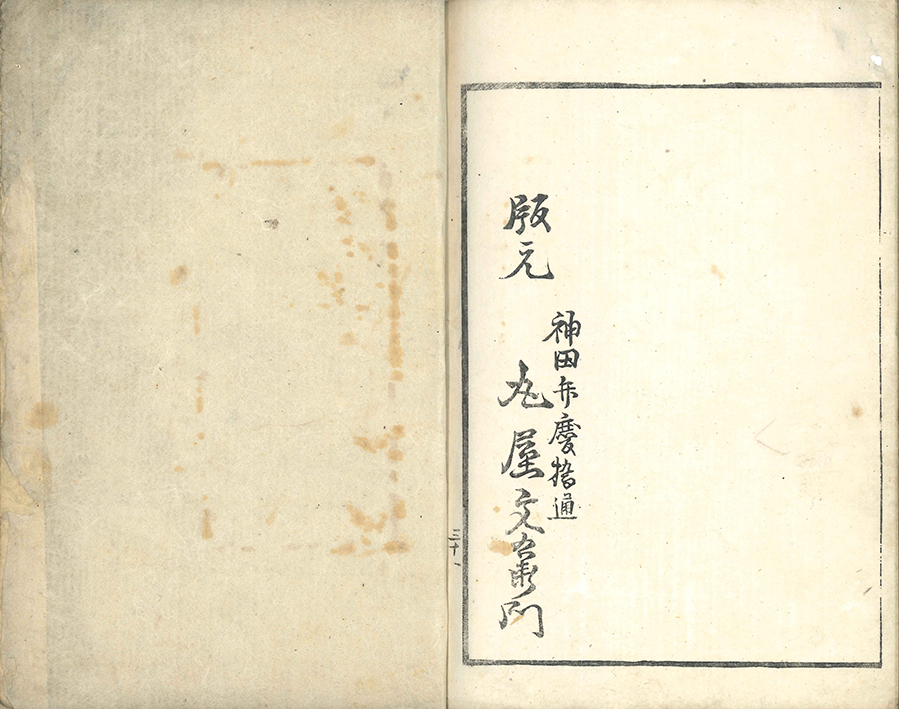 版元
神田弁慶橋通
丸屋文右衛門
三十